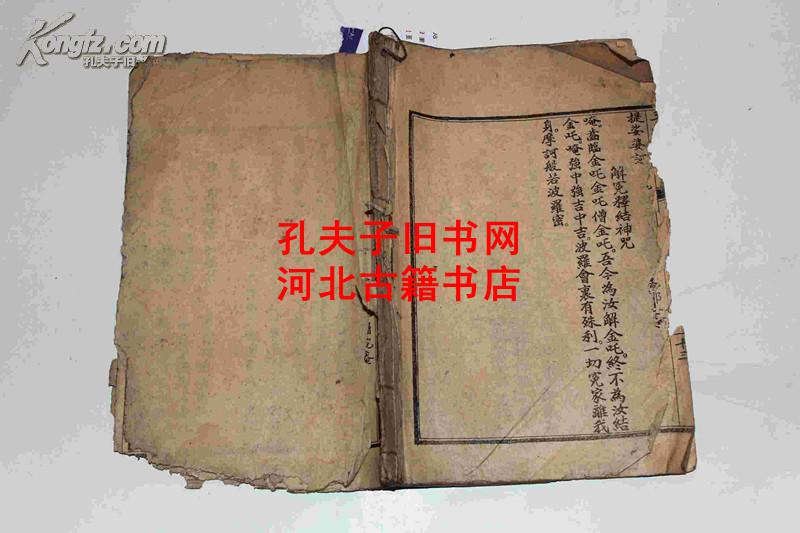 Kongfz.com
孔夫子旧
孔夫子旧书网
河北古籍书店
提娑婆
解冤釋結神咒
唵。齒臨金吒金吒僧金吒。吾今為汝解金吒。終不為汝結
金吒。唵強中強吉中吉。波羅會裏有殊利。一切冤家離我
身。摩訶般若波羅密。